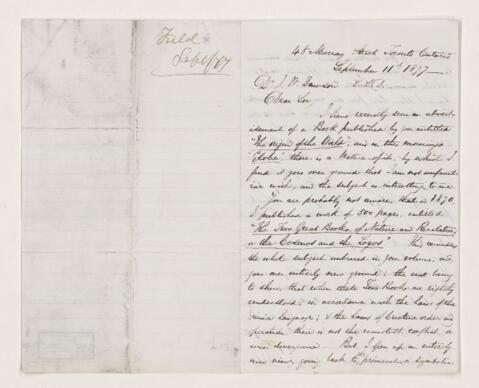 Field
Sept/77
48 Murray Street Toronto Ontario
September 11th 1877
Dr J. W. Dawson L.L.D.
Dear Sir,
I have recently seen an advert-
isement of a Book published by you entitled
"The Origin of the World", and in this mornings
"Globe", there is a Notice of it, by which I
find it goes over ground that I am not unfamil-
iar with, and the subject is interesting to me.
You are probably not aware, that in 1870,
I published a work of 500 pages, entitled
"The Two Great Books, of Nature and Revelation,
or the Cosmos and the Logos" This
the whole subject embraced in your volume, and
goes over entirely new ground: the end being
to show, that when these Two Books are rightly
understood: in accordance with the Laws of the
Divine Language; & the Laws of Creative order and
there is not the conflict or
even divergence. But I open up an entirely
new view, going back to primeval or symbolic